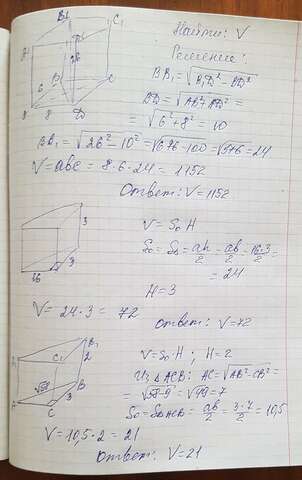 B1 C1
Найти: V
Решение:
BB₁ = √B₁D² - BD²
BD = √AB² + AD² =
= √6² + 8² = 10
BB₁ = √26² - 10² = √676 - 100 = √576 = 24
V = abc = 8 · 6 · 24 = 1152
Ответ: V = 1152
V = S₀ H
S₀ = SΔ = ah/2 = ab/2 = 16·3/2 =
= 24
H = 3
V = 24 · 3 = 72
Ответ: V = 72
V = S₀ · H ; H = 2
Из Δ ACB: AC = √AB² - CB² =
= √58 - 9 = √49 = 7
S₀ = SΔACB = ab/2 = 3·7/2 = 10,5
V = 10,5 · 2 = 21
Ответ: V = 21